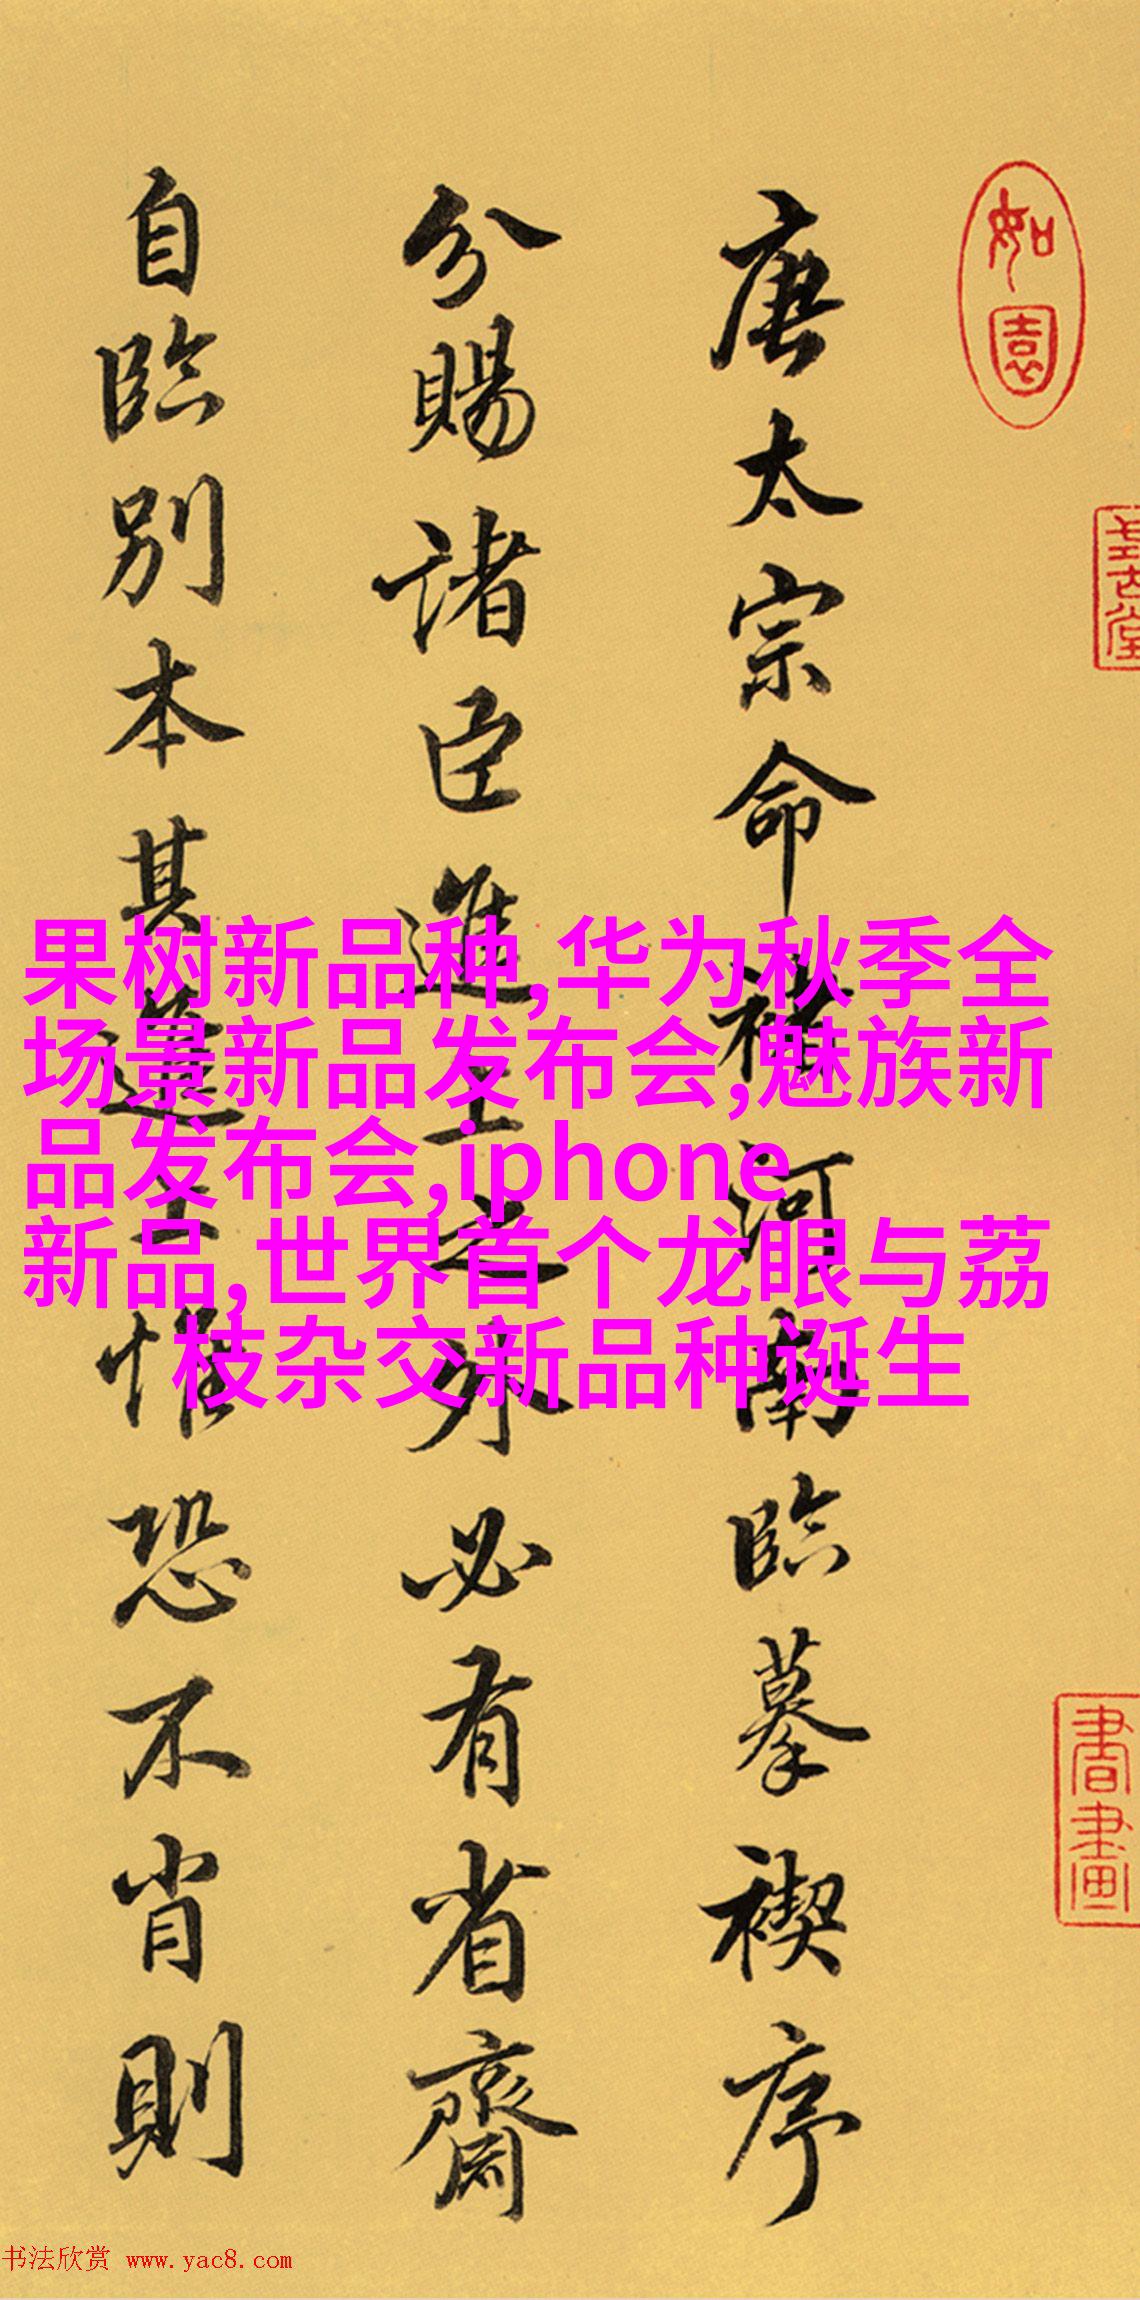 如園
唐太宗命褚河南臨摹禊序
分賜諸臣進呈之外必有省齋
自臨別本其進呈惟恐不肖則
書畫
果树新品种,华为秋季全
场景新品发布会,魅族新
品发布会,iphone
新品,世界首个龙眼与荔
枝杂交新品种诞生
书法欣赏 www.yac8.com